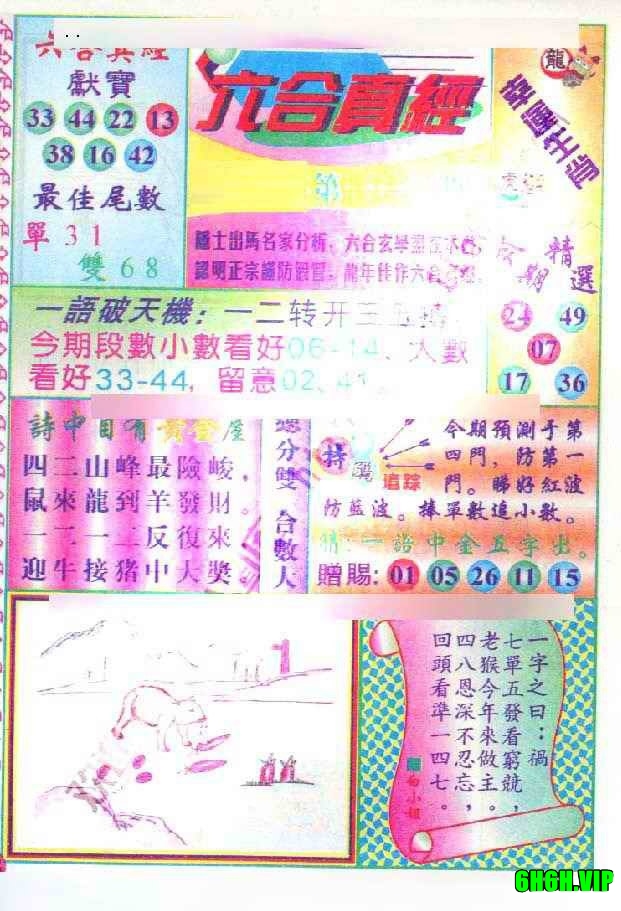 六合真經
獻寶
33 44 22 13
38 16 42
最佳尾數
單31
雙68
六合真經
龍
隱士出馬名家分析，六合玄學
認明正宗謹防假冒，龍年佳作六合
期
精選
24 49
07
17 36
一語破天機：一二转开三五
今期段數小數看好06-14、大數
看好33-44，留意02、41
詩中自有黃金屋
四二山峰最險峻，
鼠來龍到羊發財。
一二一二反復來
迎牛接猪中大獎。
總分雙 合數大
特碼
追踪
今期預測于第
四門，防第一
門。睇好紅波
防藍波。捧單數追小數。
猜：一語中金五字出。
贈賜：01 05 26 11 15
1
一字之曰：禍
七單五發看窮競，
老猴今年來做主。
四八恩深不忍忘，
回頭看準一四七。
白小姐
6H6H.VIP